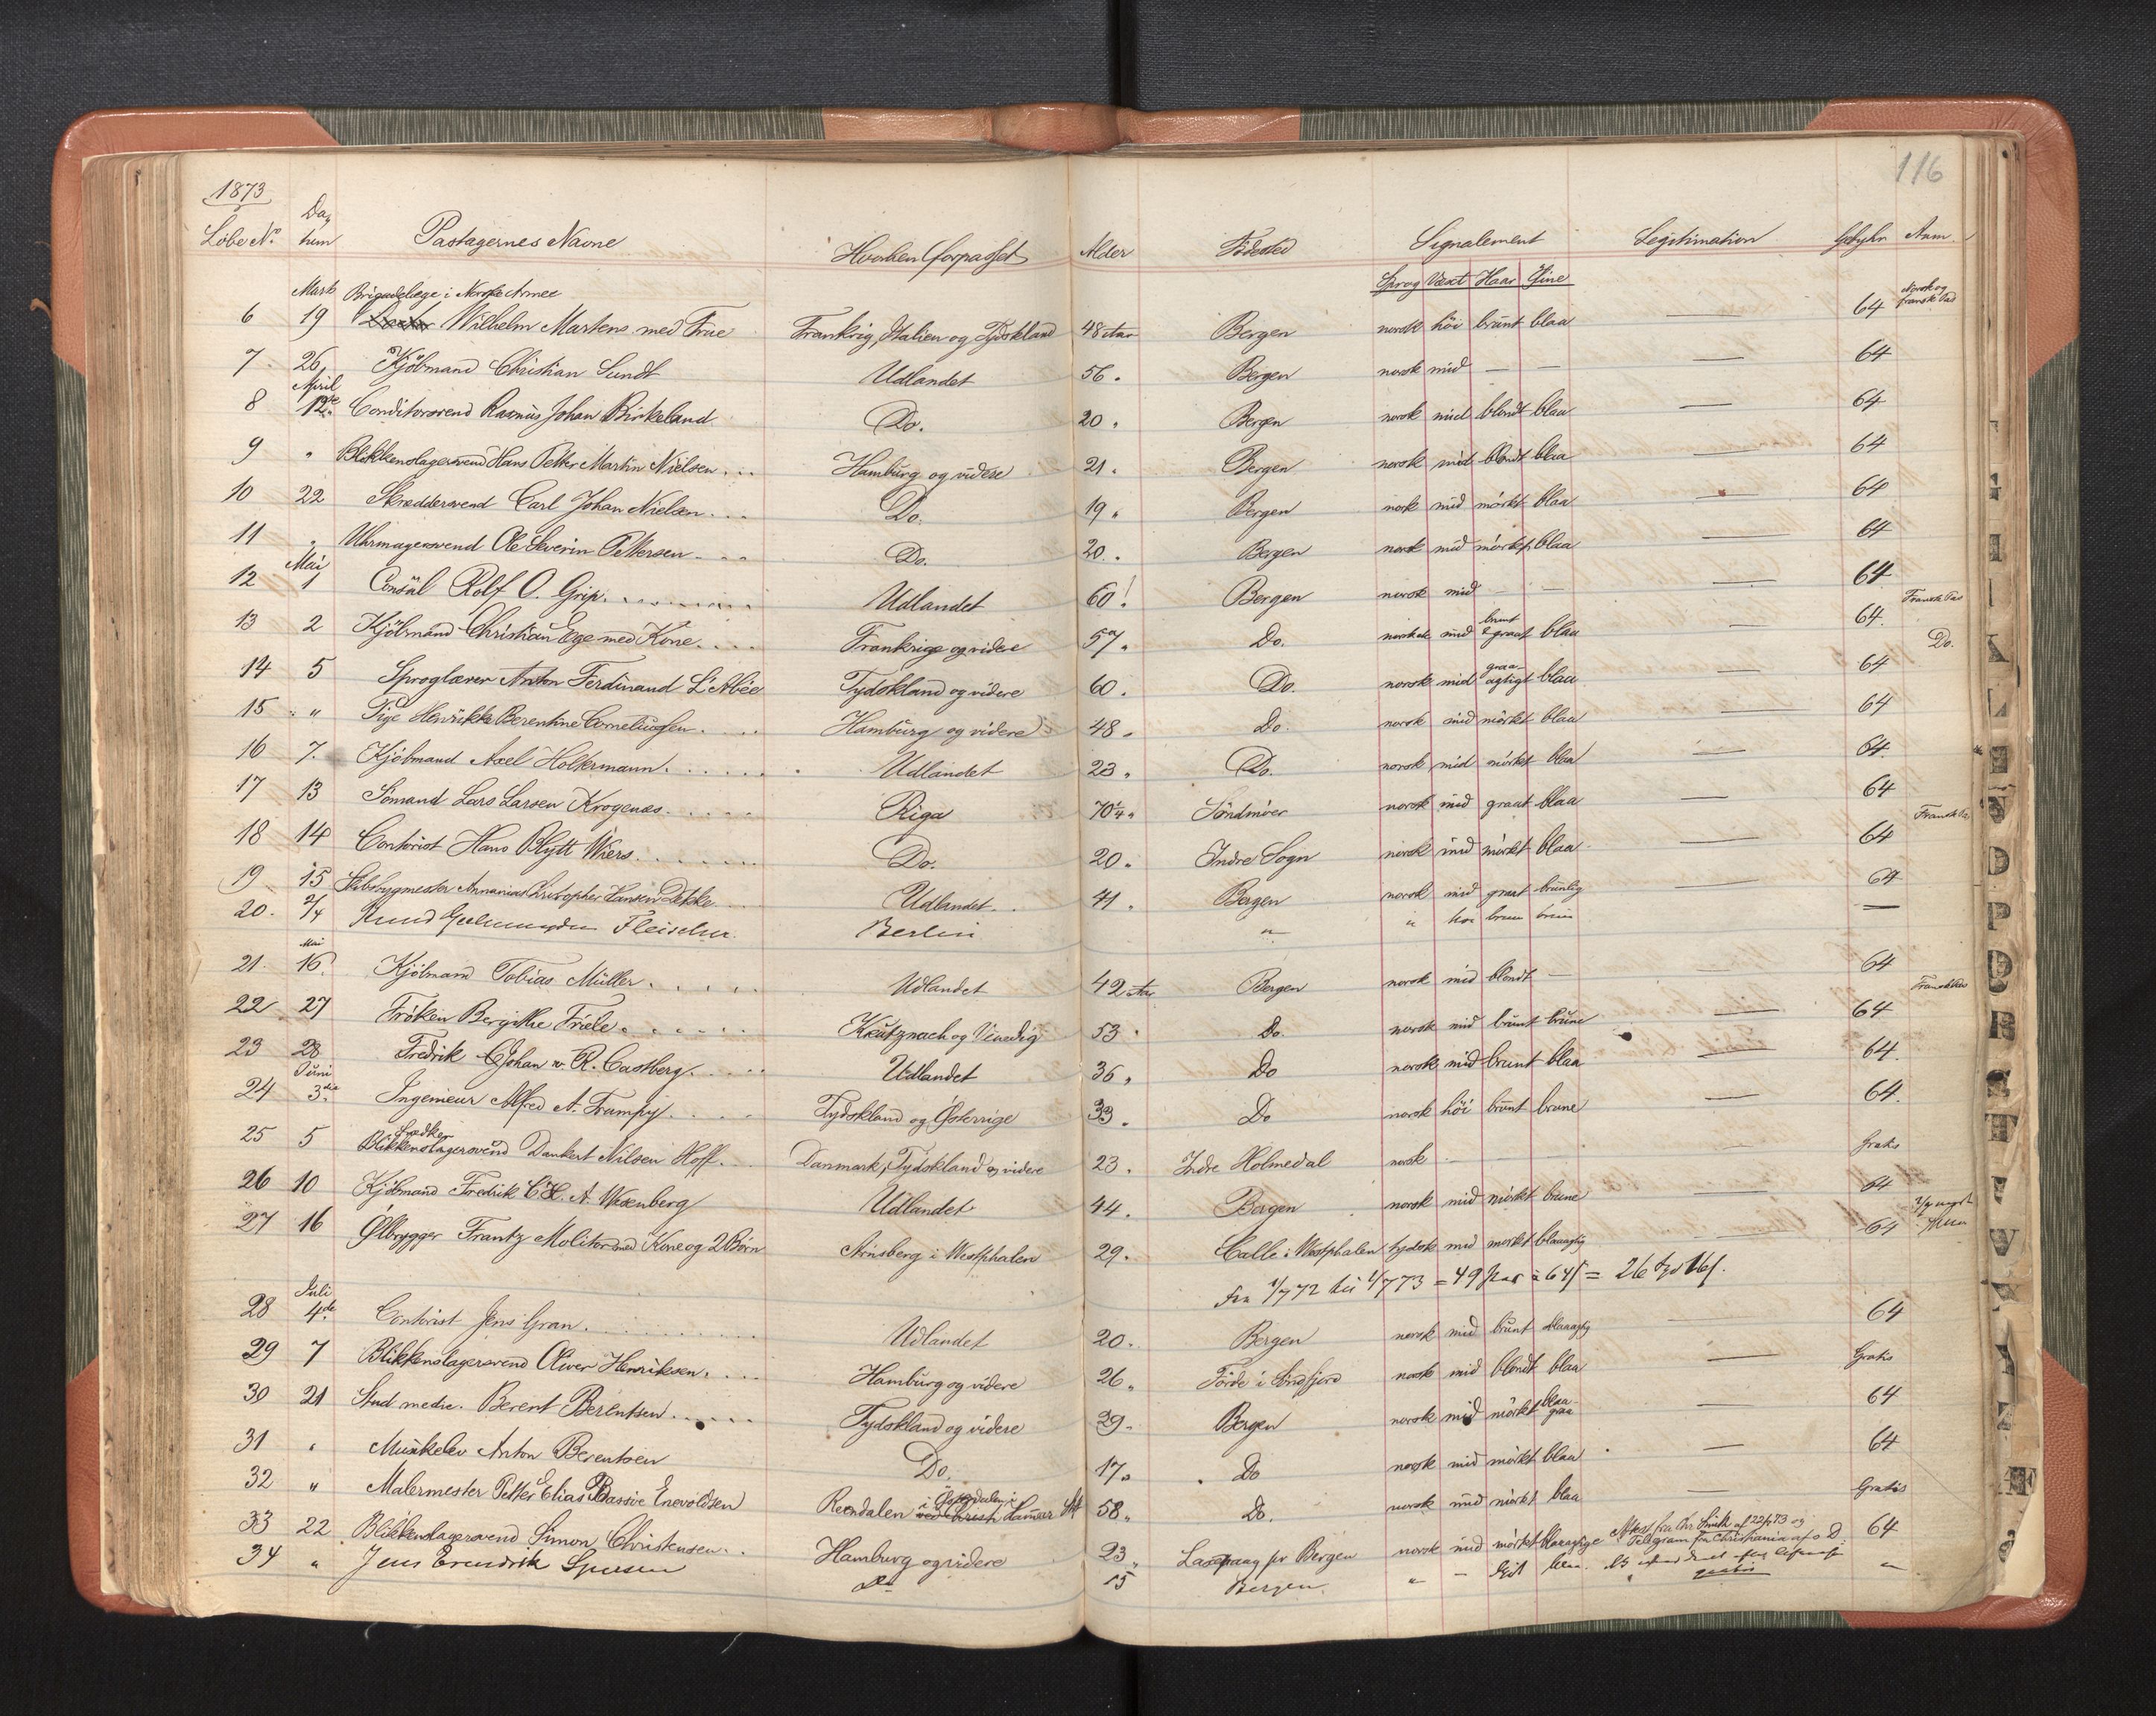 116
1873
Løbe No. Da, tum Passagernes Navne Hvorhen forpasset Alder Fødested Signalement Legitimation Gebyhr Anm.
Sprog Væxt Haar Øine
Marts Brigadelæge i Norske Armee
6 19 Wilhelm Martens med Frue Frankrig, Italien og Tydskland 48 Aar Bergen norsk høi brunt blaa — 64 Norsk og fransk Pas
7 26 Kjøbmand Christian Sundt Udlandet 56 " Bergen norsk mid — — — 64
April
8 12te Conditorsvend Rasmus Johan Birkeland Do. 20 " Bergen norsk mid blondt blaa — 64
9 " Blikkenslagersvend Hans Petter Martin Nielsen Hamburg og videre 21 " Bergen norsk mid blondt blaa — 64
10 22 Skræddersvend Carl Johan Nielsen Do. 19 " Bergen norsk mid mörkt blaa — 64
11 " Uhrmagersvend Ole Severin Pettersen Do. 20 " Bergen norsk mid mörkt blaa — 64
Mai
12 1 Consül Rolf O. Grip Udlandet 60! Bergen norsk mid — — — 64
13 2 Kjöbmand Christian Ege med Kone Frankrige og videre 57 " Do. norsk mid brunt & graat blaa — 64. Fransk Pas
14 5 Sproglærer Anton Ferdinand L'Abée Tydskland og videre 60 " Do. norsk mid graa-agtigt blaa — 64 Do.
15 " Pige Henrikke Berentine Corneliussen Hamburg og videre 48 " Do. norsk mid mörkt blaa — 64
16 7. Kjöbmand Axel Holtermann Udlandet 23 " Do. norsk mid mörket blaa — 64.
17 13 Sömand Lars Larsen Krogenæs Riga 70 1/4 " Söndmöer norsk mid graat blaa — 64
18 14 Contorist Hans Blytt Wiers Do. 20 " Indre Sogn norsk mid mörkt blaa — 64 Fransk Pas
19 15 Skibsbygmester Annanias Christopher Hansen Dekke Udlandet 41 " Bergen norsk mid graat brunlig — 64
20. 2/4 Knud Fleischer Berlin " " høi brun brun —
Mai
21. 16. Kjöbmand Tobias Müller Udlandet 42 Aar Bergen norsk mid blondt — 64
22 27 Fröken Bergithe Friele Kreutznach og Venedig 53 " Do. norsk mid brunt brune — 64 Fransk Pas
23 28 Fredrik Johan v. R. Castberg Udlandet 36 " Do norsk mid brunt blaa — 64.
Juni
24 3die Ingenieur Alfred A. Trumpy Tydskland og Østerrige 33 " Do norsk høi brunt brune — 64.
25 5 Blikkenslagersvend Dankert Nilsen Hoff Danmark, Tydskland og videre 23 " Indre Holmedal norsk — Gratis
26 10 Kjöbmand Fredrik C. H. A. Wesenberg Udlandet 44 " Bergen norsk mid mörkt brune — 64
27 16 Ølbrygger Frantz Molitor med Kone og 2 Børn Arnsberg i Westphalen 29 " Calle i Westphalen tydsk mid mørkt blaaagtig 64
Fra 1/7 72 til 1/7 73 = 49 Pas à 64 ß = 26
Juli
28 4de Contorist Jens Gran Udlandet 20 " Bergen norsk mid brunt blaaagtig — 64
29 7 Blikkenslagersvend Oliver Henriksen Hamburg og videre 26 " Förde i Söndfjord norsk mid blondt blaa — Gratis
30 21 Stud. medic. Berent Berentsen Tydskland og videre 29 " Bergen norsk mid mörkt blaa-graa — 64
31 " Musikelev Anton Berentsen Do. 17 " Do norsk mid mörkt blaa — 64
32 " Malermester Petter Elias Bassøe Enevoldsen Reendalen i Østerdalen i Hamar Stift 58 " Do. norsk mid mörkt blaa — Gratis
33 22 Blikkenslagersvend Simon Christensen Hamburg og videre 23 " pr Bergen norsk mid mörkt blaaagtige Attest fra af 22/7 73 og Telegram fra Christiania af s. D. 64
34 " Jens Do 15 " Bergen " — blaa gratis "